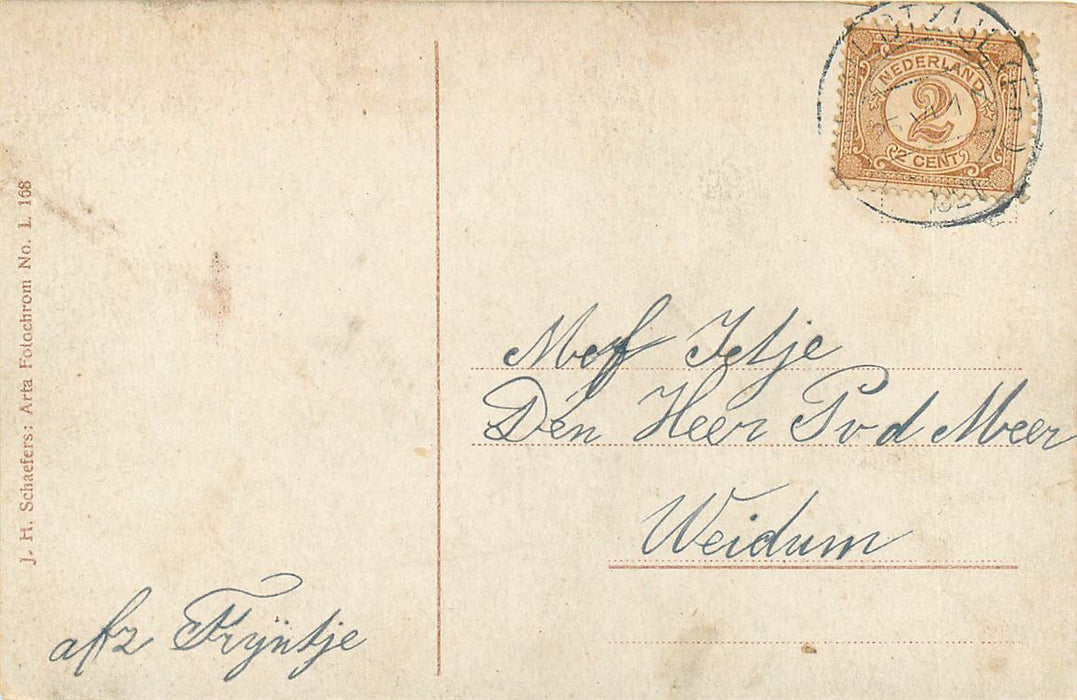 J. H. Schaefers: Arta Fotochrom No. L. 168
NEDERLAND
2
2 CENT
Mej Ietje
Den Heer P v d Meer
Weidum
afz Frÿntje